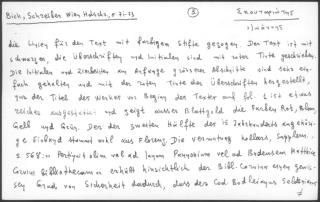 Bick, Schreiber Wien. Hdschr., S. 71-73
③
die Linien für den Text mit farbigem Stifte gezogen. Der Text ist mit
schwarzer, die Überschriften und Initialen sind mit roter Tinte geschrieben.
Die Initialen und Zierleisten am Anfange grösserer Abschnitte sind sehr ein-
fach gehalten und mit der roten Tinte der Überschriften hergestellt.
nur der Titel der Werke vor Beginn der Texte auf fol. 1 ist etwas
reicher ausgestattet und zeigt ausser Blattgold die Farben Rot, Blau,
Gelb und Grün. Der der zweiten Hälfte des 15. Jahrhunderts angehöri-
ge Einband stammt wohl aus Florenz. Die Vermutung Kollars, Supplem.
S. 568: "pertinuit olim vel ad Janum Pannonium vel ad Budensem Matthiae
Corvini Bibliothecam" erhält hinsichtlich der Bibl. Corvina einen gewis-
sen Grad von Sicherheit dadurch, dass der Cod. Bodleianus Seldenianus